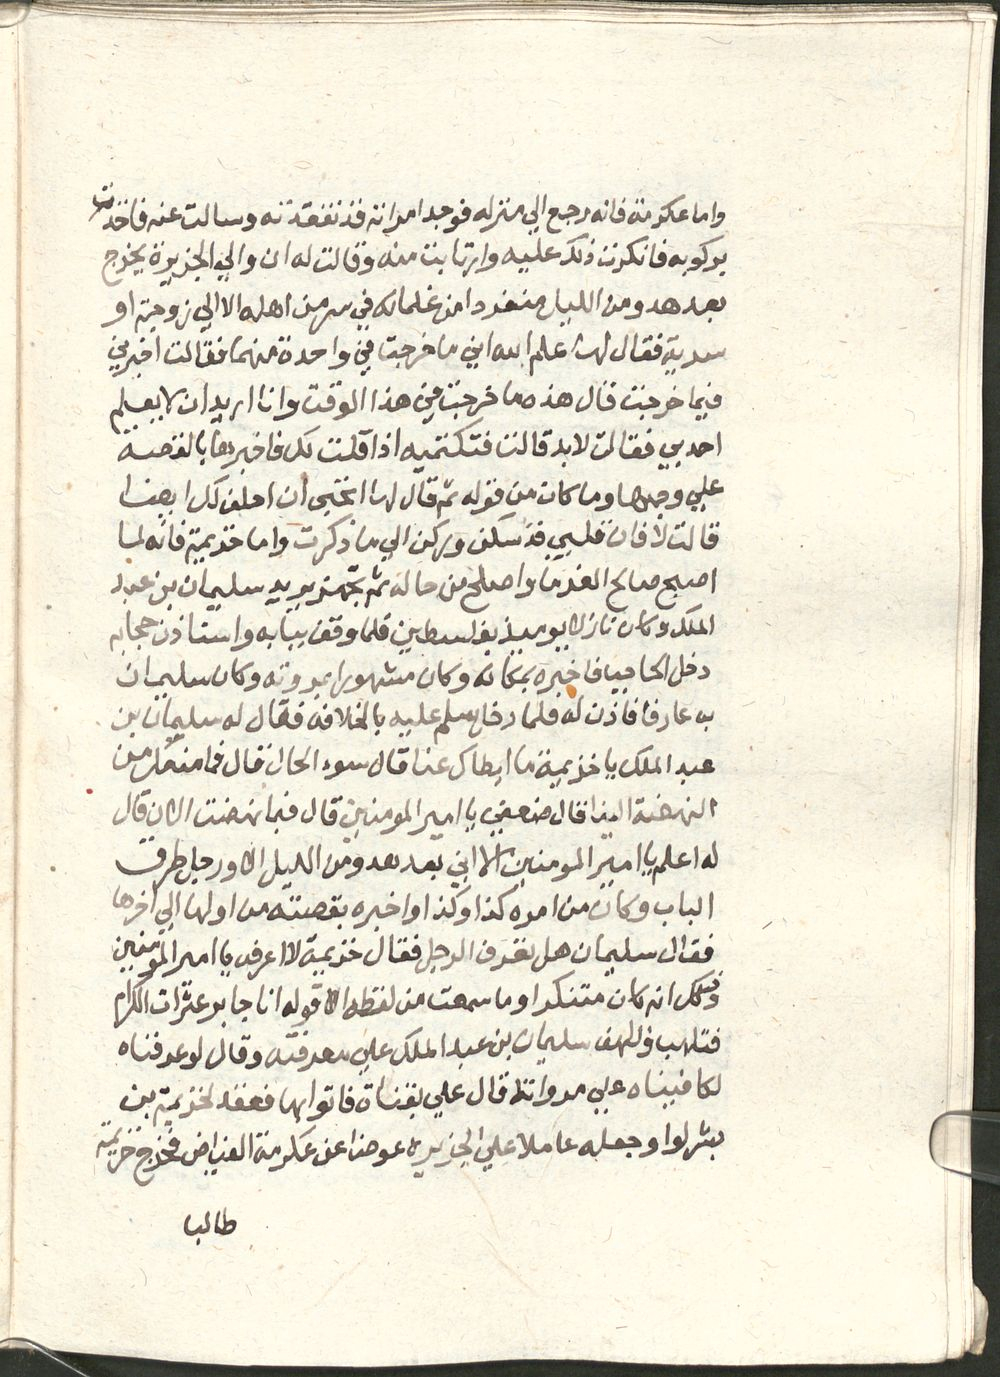 واما عكرمة فانه رجع الي منزله فوجد امراته قد تفقدته وسالت عنه فاخبرت
بركوبه فانكرت ذلك عليه وارتابت منه وقالت له ان والي الجزيرة يخرج
بعد هدو من الليل منفردا من غلمانه في سر من اهله الا الي زوجة او
سرية فقال لها علم الله اني ما خرجت في واحدة منهما فقالت اخبرني
فيما خرجت قال هذه ما خرجت في هذا الوقت وانا اريد ان لا يعلم
احد بي فقالت لابد قالت فتكتميه اذا قلت لك فاخبرها بالقصه
علي وجهها وما كان من قوله ثم قال لها اتحبي ان احلف لك ايضا
قالت لا فان قلبي قد سكن وركن الي ما ذكرت واما خذيمة فانه لما
اصبح صالح الغرما واصلح من حاله ثم تجهز يريد سليمان بن عبد
الملك وكان نازلا يوميذ بفلسطين فلما وقف ببابه واستاذن حجابه
دخل الحاجب فاخبره بمكانه وكان مشهورا بمروته وكان سليمان
به عارفا فاذن له فلما دخل سلم عليه بالخلافه فقال له سليمان بن
عبد الملك يا خذيمة ما ابطاك عنا قال سوء الحال قال فما منعك من
النهضة الينا قال ضعفي يا امير المومنين قال فبما نهضت الان قال
له اعلم يا امير المومنين الا اني بعد هدو من الليل الا ورجل طرق
الباب وكان من امره كذا وكذا واخبره بقصته من اولها الي اخرها
فقال سليمان هل تعرف الرجل فقال خذيمة لا اعرفه يا امير المومنين
وذلك انه كان متنكرا وما سمعت من لفظه الا قوله انا جابر عثرات الكرام
فتلهب وتلهف سليمان بن عبد الملك علي معرفته وقال لو عرفناه
لكافيناه علي مرواته قال علي بقناة فاتوا بها فعقد لخذيمة بن
بشر لوا وجعله عاملا علي الجزيره عوضا عن عكرمة الفياض فخرج خزيمة
طالبا